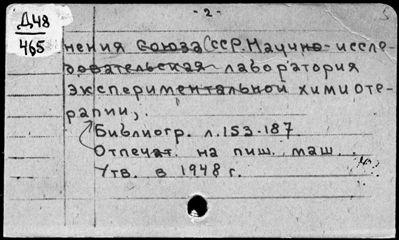 - 2 -
Д48
465
нения Союза ССР. Научно-иссле-
довательская лаборатория
экспериментальной химиоте-
рапии,.
Библиогр. л.153-187.
Отпечат. на пиш. маш.
Утв. в 1948 г.